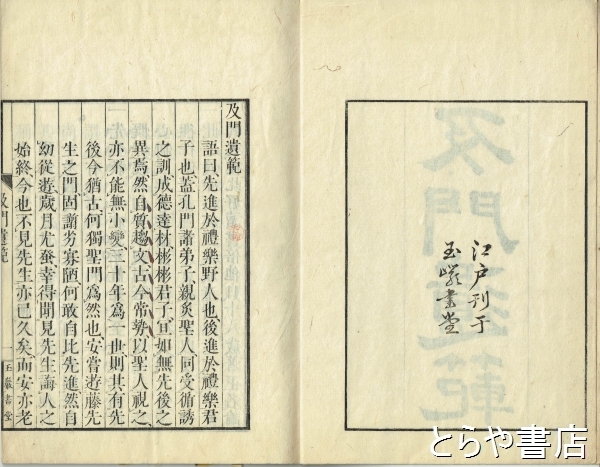 江戸刊于
玉巖書堂
及門遺範
語曰先進於禮樂野人也後進於禮樂君
子也蓋孔門諸弟子親炙聖人同受循誘
之訓成德達材彬彬君子宜如無先後之
異焉然自質趨文古今常勢以聖人視之
亦不能無小變三十年爲一世則其有先
後今猶古何獨聖門爲然也安嘗遊藤先
生之門固謭劣寡陋何敢自比先進然自
幼從遊歲月尤舊幸得聞見先生誨人之
始終今也不見先生亦已久矣而安亦老
及門遺範
一
玉巖書堂
とらや書店